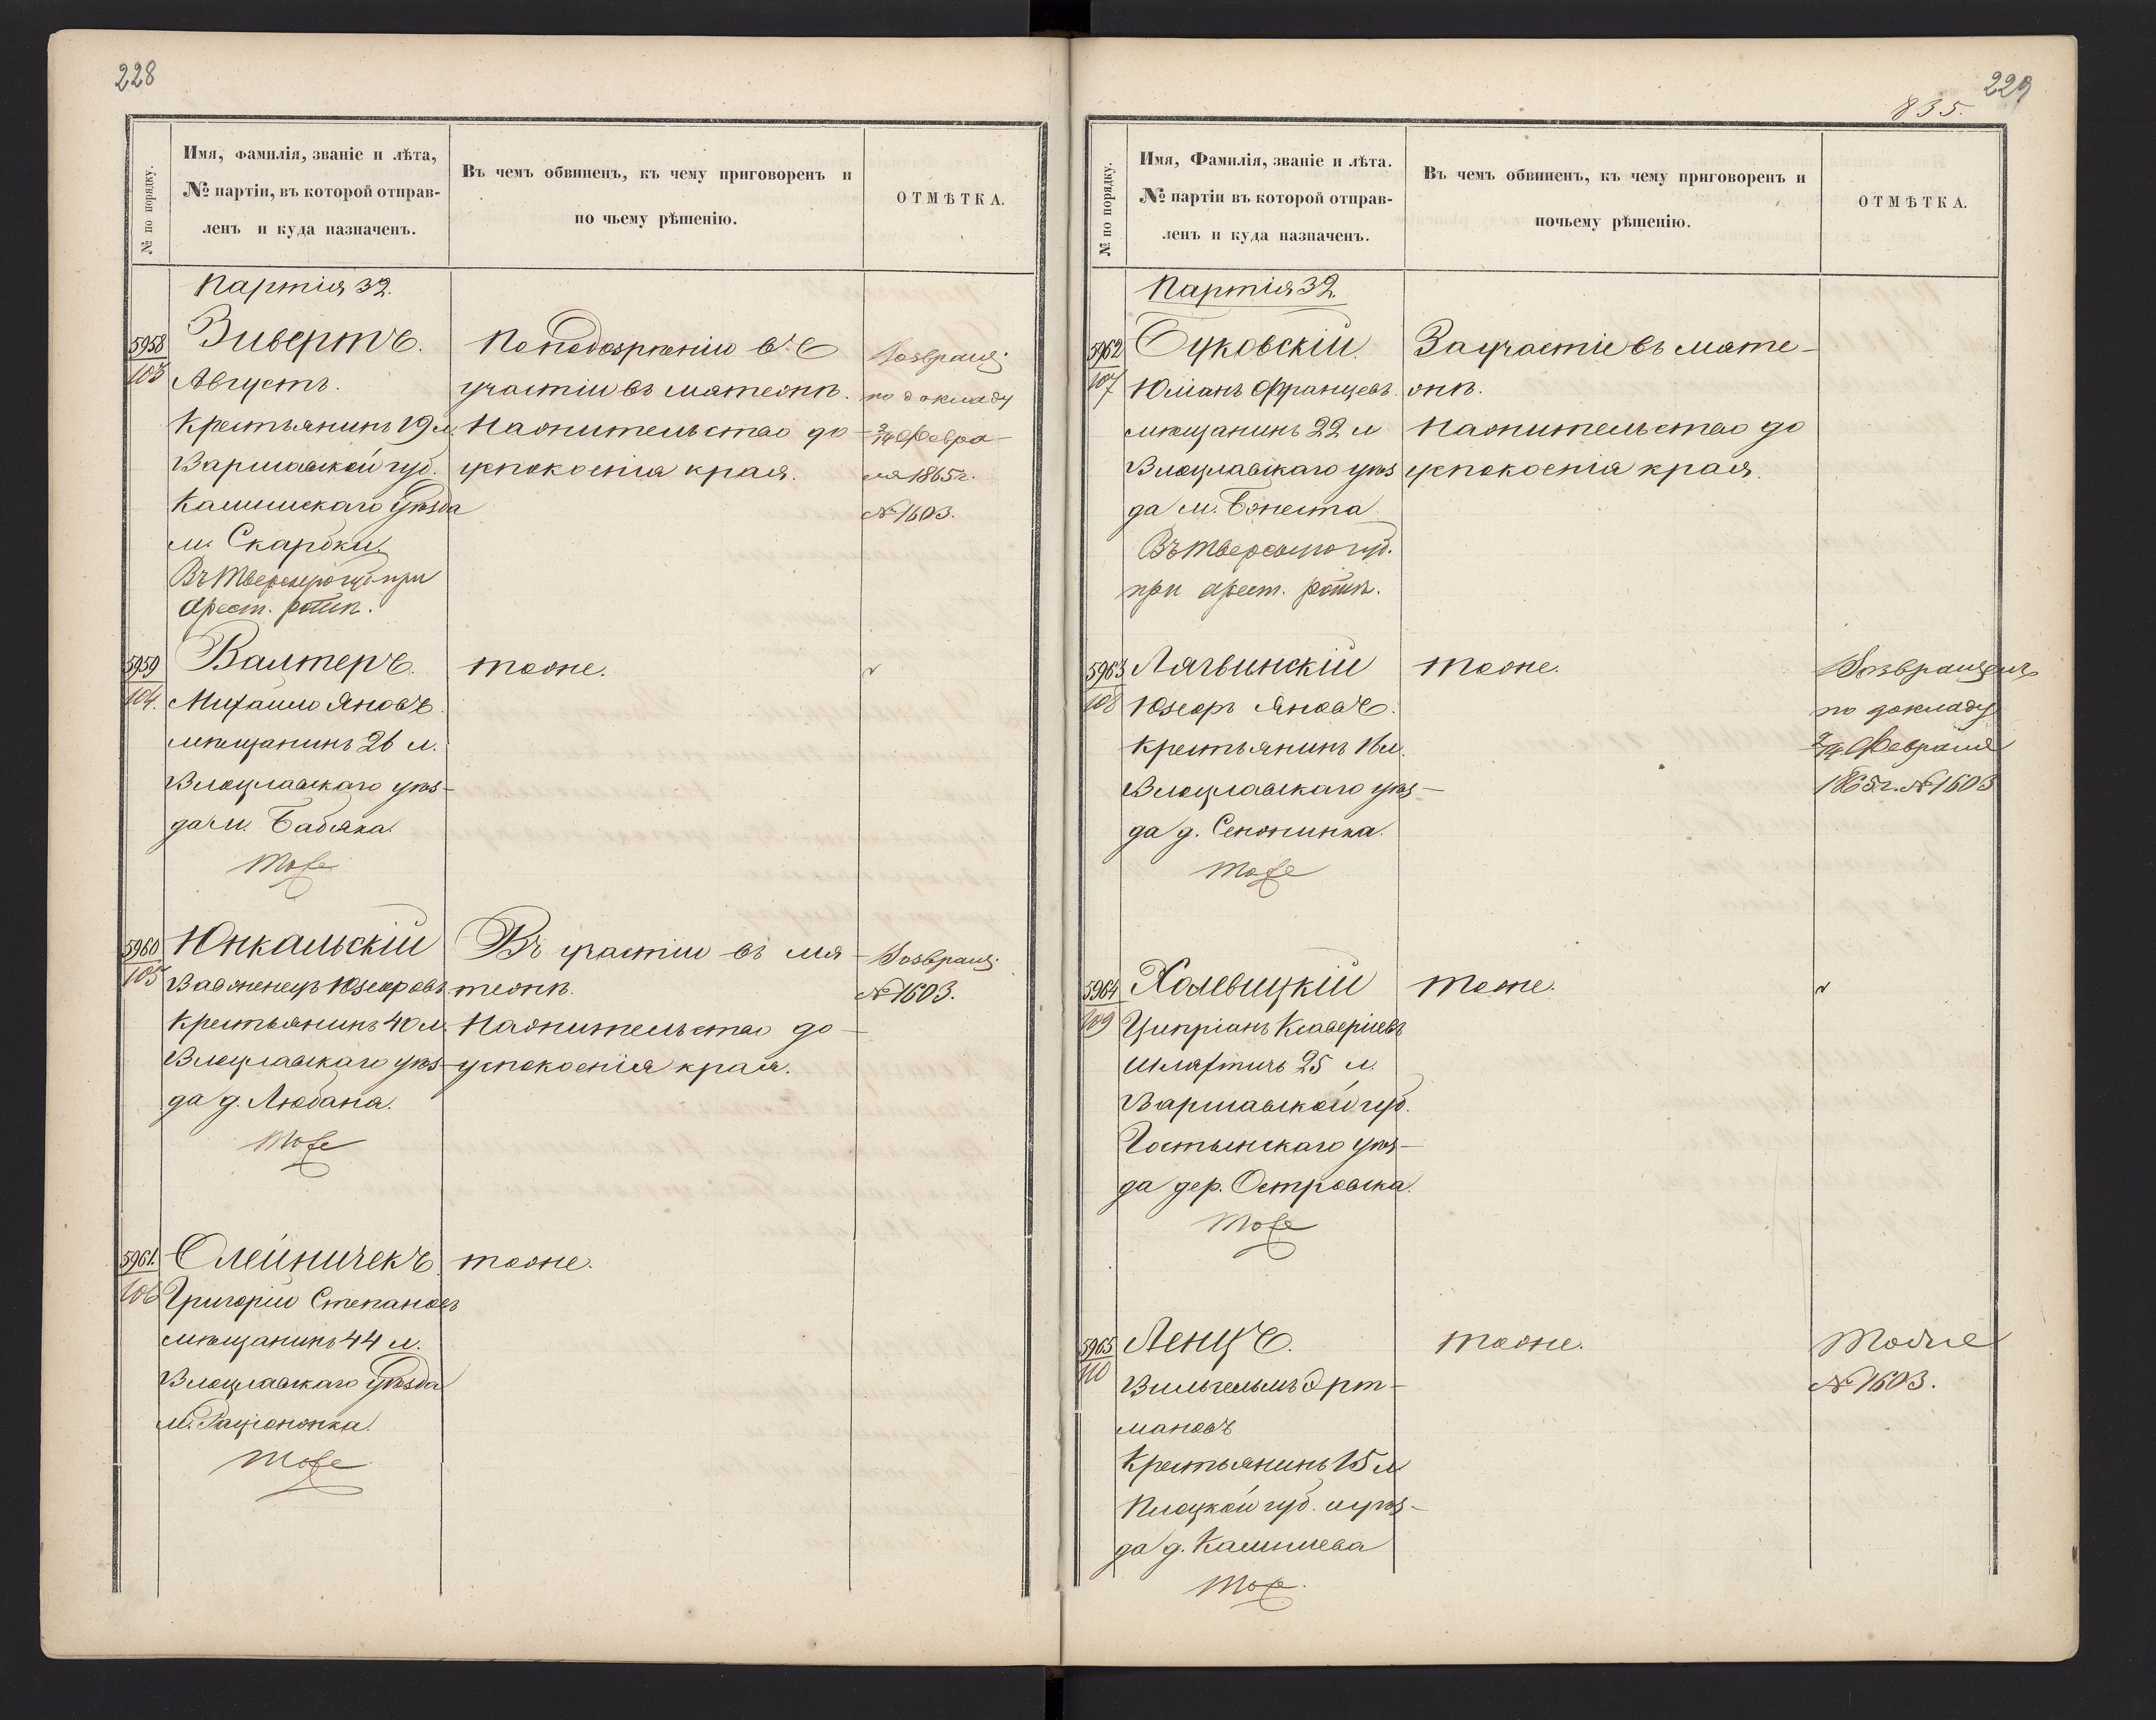 228
№ по порядку.
Имя, фамилія, званіе и лѣта,
№ партіи, въ которой отправ-
ленъ и куда назначенъ.
Въ чемъ обвиненъ, къ чему приговоренъ и
по чьему рѣшенію.
ОТМѢТКА.
Партія 32.
5958
103
Зивертъ.
Августъ.
Крестьянинъ 19 л.
Варшавской губ.
Калишскаго Уѣзда
м. Скарбки.
Въ Тверскую губ. при
Арест. ротѣ.
По подозрѣнію въ
участіи въ мятежѣ.
На жительство до
успокоенія края.
Возвращ.
по докладу
2/14 Февра-
ля 1865 г.
№ 1603.
5959
104.
Валтеръ.
Михаилъ Яновъ
мѣщанинъ 26 л.
Влоцлавскаго уѣз-
да м. Бабяка.
тоже
тоже.
5960
105
Юнкальскій
Вавженецъ Юзефовъ
Крестьянинъ 40 л.
Влоцлавскаго уѣз-
да д. Любана.
тоже
Въ участіи въ мя-
тежѣ.
На жительство до
успокоенія края.
Возвращ.
№ 1603.
5961.
106
Олейничекъ
Григорій Степановъ
мѣщанинъ 44 л.
Влоцлавскаго Уѣзда
м. Раціонжка.
тоже
тоже.
229
835.
№ по порядку.
Имя, Фамилія, званіе и лѣта.
№ партіи въ которой отправ-
ленъ и куда назначенъ.
Въ чемъ обвиненъ, къ чему приговоренъ и
почьему рѣшенію.
ОТМѢТКА.
Партія 32.
5962
107
Буковскій.
Юліанъ Францевъ
мѣщанинъ 22 л
Влоцлавскаго уѣз
да м.
Въ Тверскую губ.
при арест. ротѣ.
За участіе въ мяте-
жѣ.
На жительство до
успокоенія края.
5963
108
Лячвинскій
Юзефъ Яновъ.
Крестьянинъ 16 л.
Влоцлавскаго уѣз-
да д.
тоже
тоже.
Возвращенъ
по докладу
2/14 Февраля
1865 г. № 1603
5964
109
Халевицкій
Ципріанъ Ксаверіевъ
Шляхтичъ 25 л.
Варшавской губ.
Гостынскаго уѣз-
да дер. Островска.
тоже
тоже.
5965
110
Ленцъ.
Вильгельмъ Эрт-
мановъ
Крестьянинъ 15 л
Плоцкой губ. и уѣз-
да д.
тоже.
тоже.
Тоже
№ 1603.